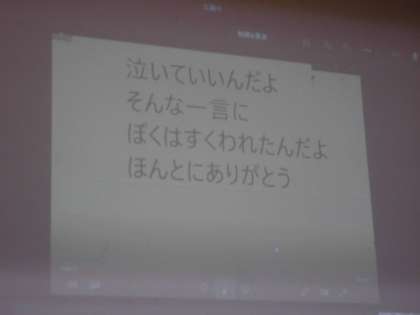 泣いていいんだよ
そんな一言に
ぼくはすくわれたんだよ
ほんとにありがとう